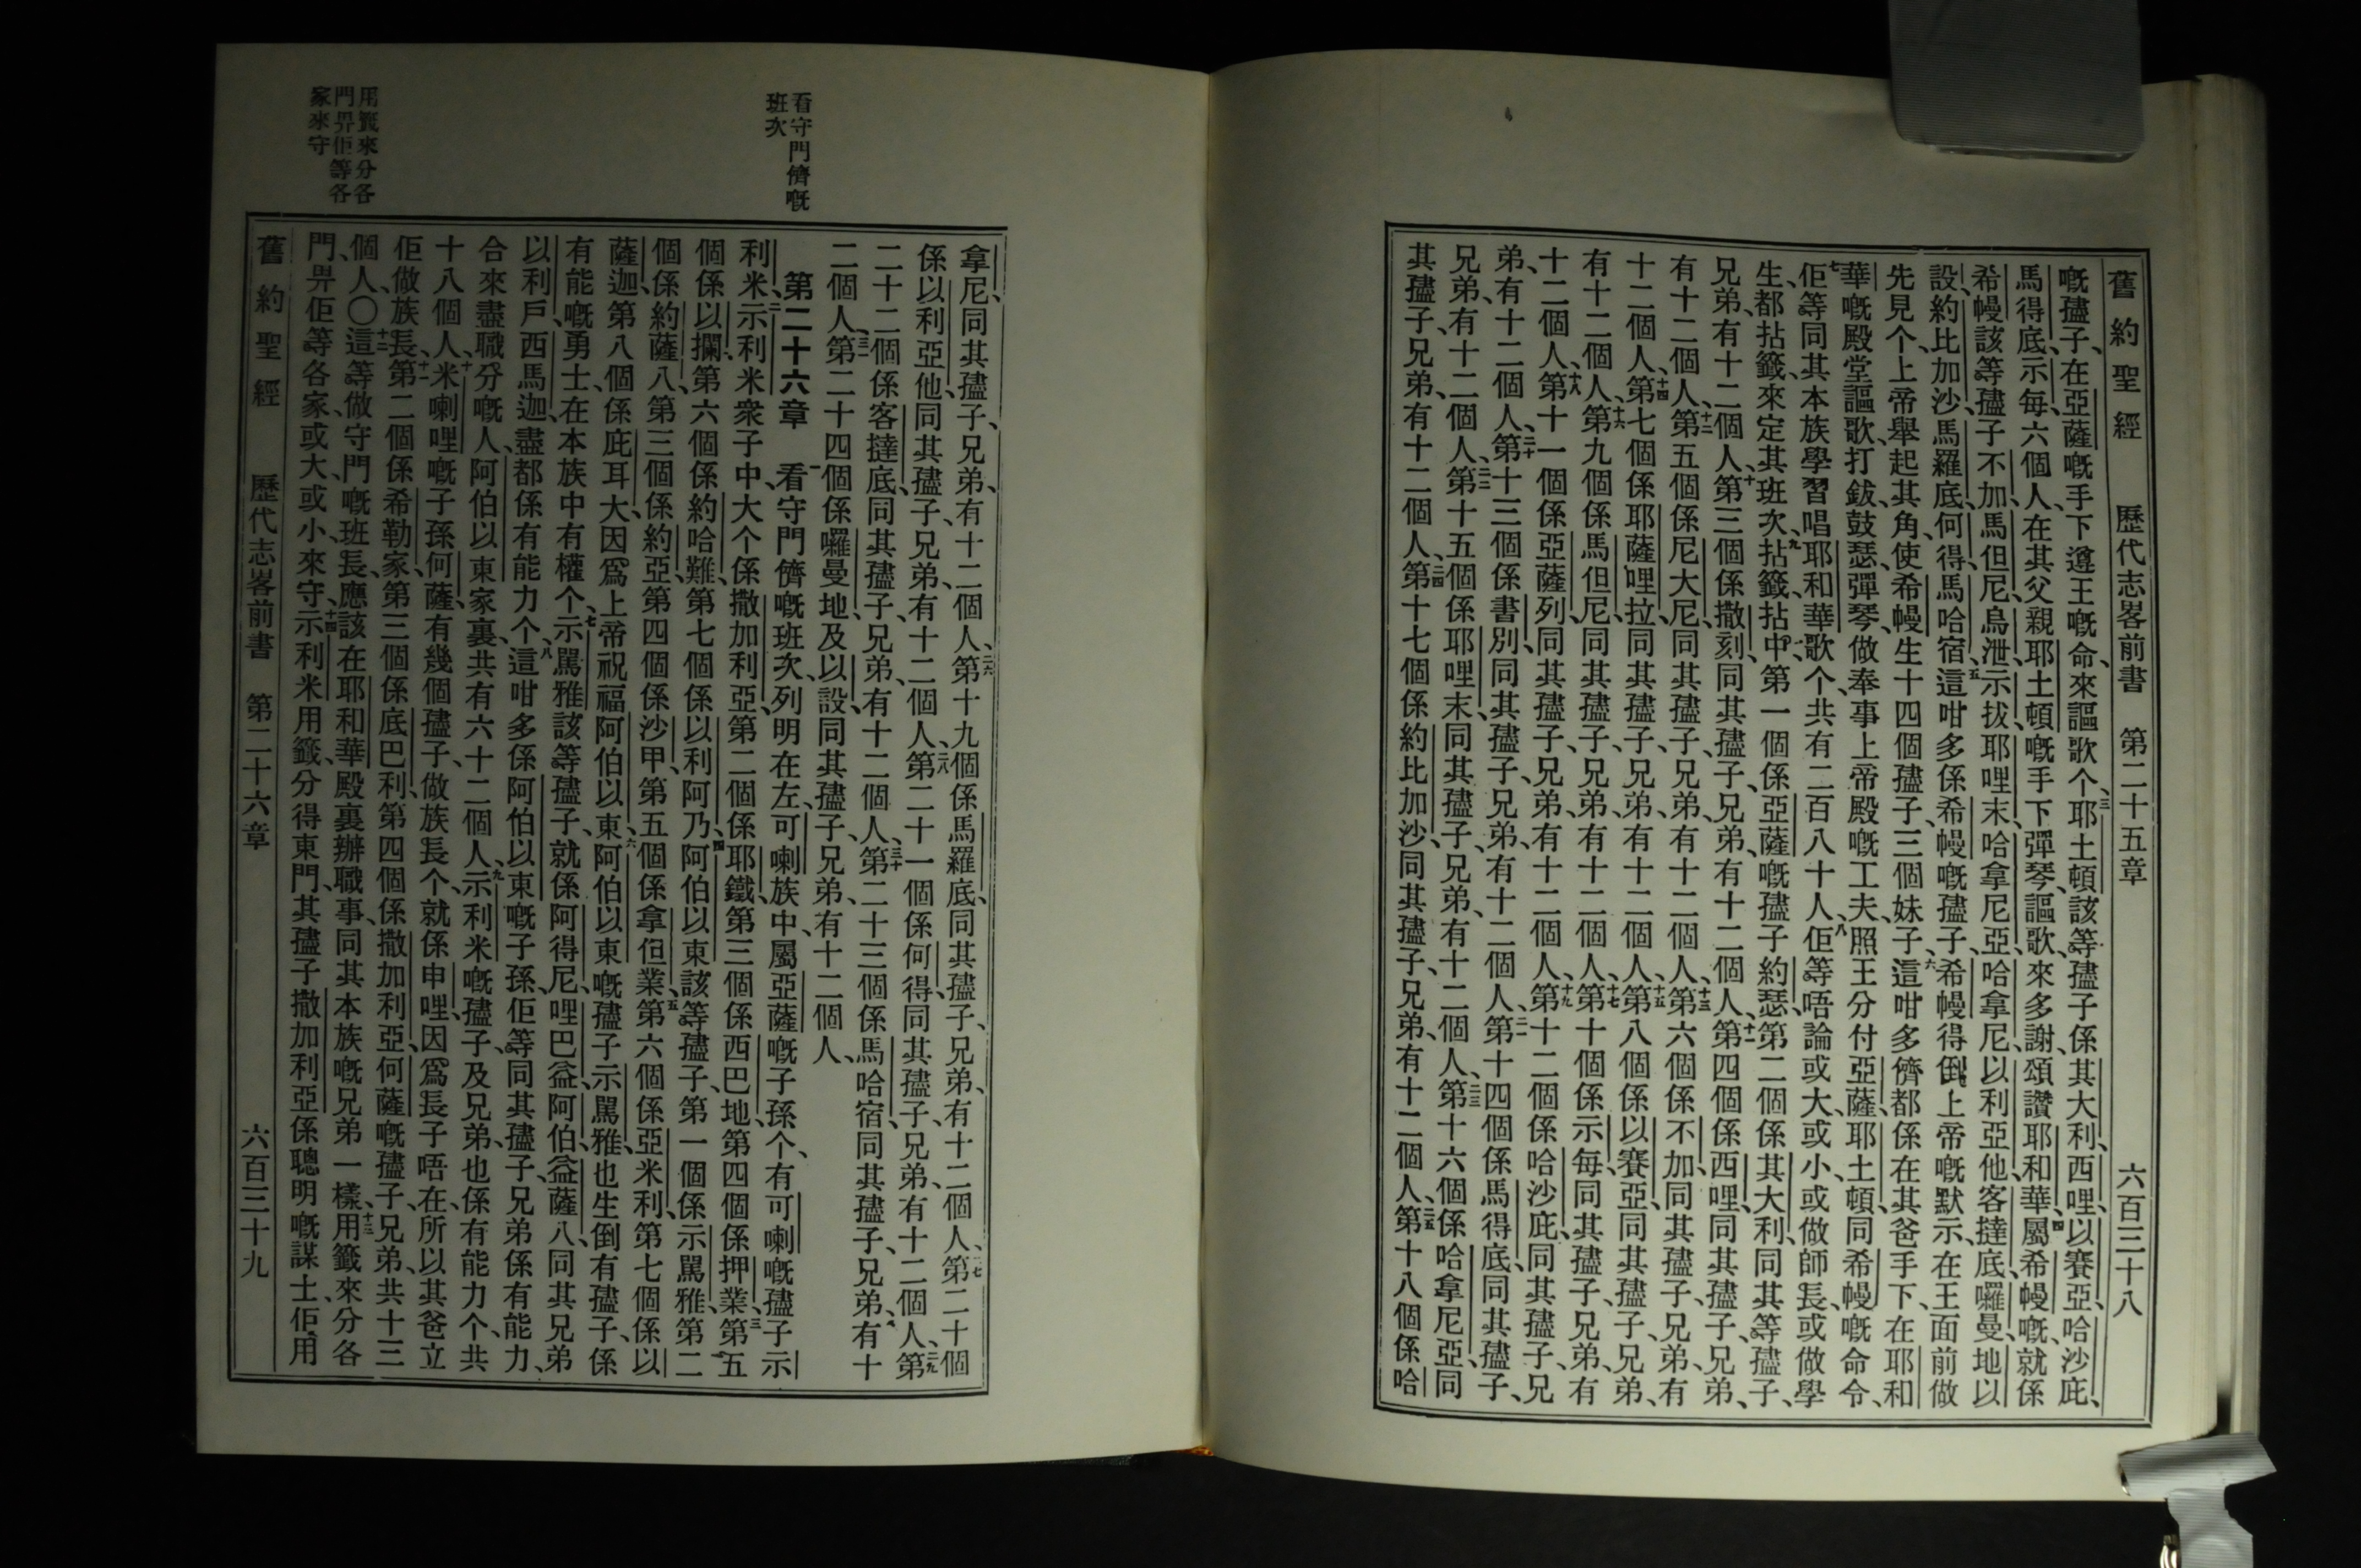 舊約聖經　歷代志畧前書　第二十五章　六百三十八
嘅孻子、在亞薩嘅手下遵王嘅命、來謳歌个、三耶土頓該等孻子係其大利、西哩、以賽亞、哈沙庇、
馬得底、示每、六個人、在其父親耶土頓嘅手下彈琴、謳歌、來多謝、頌讚耶和華、四屬希幔嘅、就係
希幔該等孻子不加、馬但尼、烏泄、示拔、耶哩末、哈拿尼亞、哈拿尼、以利亞他、客撻底、囉曼地以
設、約比加沙、馬羅底、何得、馬哈宿、五這咁多係希幔嘅孻子、希幔得倒上帝嘅默示、在王面前做
先見个、上帝舉起其角、使希幔生十四個孻子、三個妹子、六這咁多儕都係在其爸手下、在耶和
華嘅殿堂謳歌、打鈸、鼓瑟、彈琴、做奉事上帝殿嘅工夫、照王分付亞薩、耶土頓、同希幔嘅命令、
七佢等同其本族學習唱耶和華歌个、共有二百八十八人、八佢等唔論或大、或小、或做師長、或做學
生、都拈籤來定其班次、九拈籤拈中、第一個係亞薩嘅孻子約瑟、第二個係其大利、同其等孻子、
兄弟、有十二個人、十第三個係撒刻、同其孻子、兄弟、有十二個人、十一第四個係西哩、同其孻子、兄弟、
有十二個人、十二第五個係尼大尼、同其孻子、兄弟、有十二個人、十三第六個係不加、同其孻子、兄弟、有
十二個人、十四第七個係耶薩哩拉、同其孻子、兄弟、有十二個人、十五第八個係以賽亞、同其孻子、兄弟、
有十二個人、十六第九個係馬但尼、同其孻子、兄弟、有十二個人、十七第十個係示每、同其孻子、兄弟、有
十二個人、十八第十一個係亞薩列、同其孻子、兄弟、有十二個人、十九第十二個係哈沙庇、同其孻子、兄
弟、有十二個人、二十第十三個係書別、同其孻子、兄弟、有十二個人、二一第十四個係馬得底、同其孻子、
兄弟、有十二個人、二二第十五個係耶哩末、同其孻子、兄弟、有十二個人、二三第十六個係哈拿尼亞、同
其孻子、兄弟、有十二個人、二四第十七個係約比加沙、同其孻子、兄弟、有十二個人、二五第十八個係哈
拿尼、同其孻子、兄弟、有十二個人、二六第十九個係馬羅底、同其孻子、兄弟、有十二個人、二七第二十個
係以利亞他、同其孻子、兄弟、有十二個人、二八第二十一個係何得、同其孻子、兄弟、有十二個人、二九第
二十二個係客撻底、同其孻子、兄弟、有十二個人、三十第二十三個係馬哈宿、同其孻子、兄弟、有十
二個人、三一第二十四個係囉曼地、及以設、同其孻子、兄弟、有十二個人、
看守門儕嘅
班次
第二十六章　一看守門儕嘅班次、列明在左、可喇族中、屬亞薩嘅子孫个、有可喇嘅孻子示
利米、二示利米衆子中、大个係撒加利亞、第二個係耶鐵、第三個係西巴地、第四個係押業、三第五
個係以攔、第六個係約哈難、第七個係以利阿乃、四阿伯以東該等孻子、第一個係示罵雅、第二
個係約薩八、第三個係約亞、第四個係沙甲、第五個係拿但業、五第六個係亞米利、第七個係以
薩迦、第八個係庇耳大、因爲上帝祝福阿伯以東、六阿伯以東嘅孻子示罵雅、也生倒有孻子、係
有能嘅勇士、在本族中有權个、七示罵雅該等孻子、就係阿得尼、哩巴益、阿伯益薩八、同其兄弟
以利戶、西馬迦、盡都係有能力个、八這咁多係阿伯以東嘅子孫、佢等同其孻子、兄弟係有能力、
合來盡職分嘅人、阿伯以東家裏、共有六十二個人、九示利米嘅孻子、及兄弟、也係有能力个、共
十八個人、十米喇哩嘅子孫何薩、有幾個孻子、做族長个、就係申哩、因爲長子唔在、所以其爸立
佢做族長、十一第二個係希勒家、第三個係底巴利、第四個係撒加利亞、何薩嘅孻子、兄弟、共十三
個人、〇十二這等做守門嘅班長、應該在耶和華殿裏辦職事、同其本族嘅兄弟一樣、十三用籤來分各
門、畀佢等各家、或大、或小、來守、十四示利米用籤、分得東門、其孻子撒加利亞係聰明嘅謀士、佢用
用籤來分各
門畀佢等各
家來守
舊約聖經　歷代志畧前書　第二十六章　六百三十九